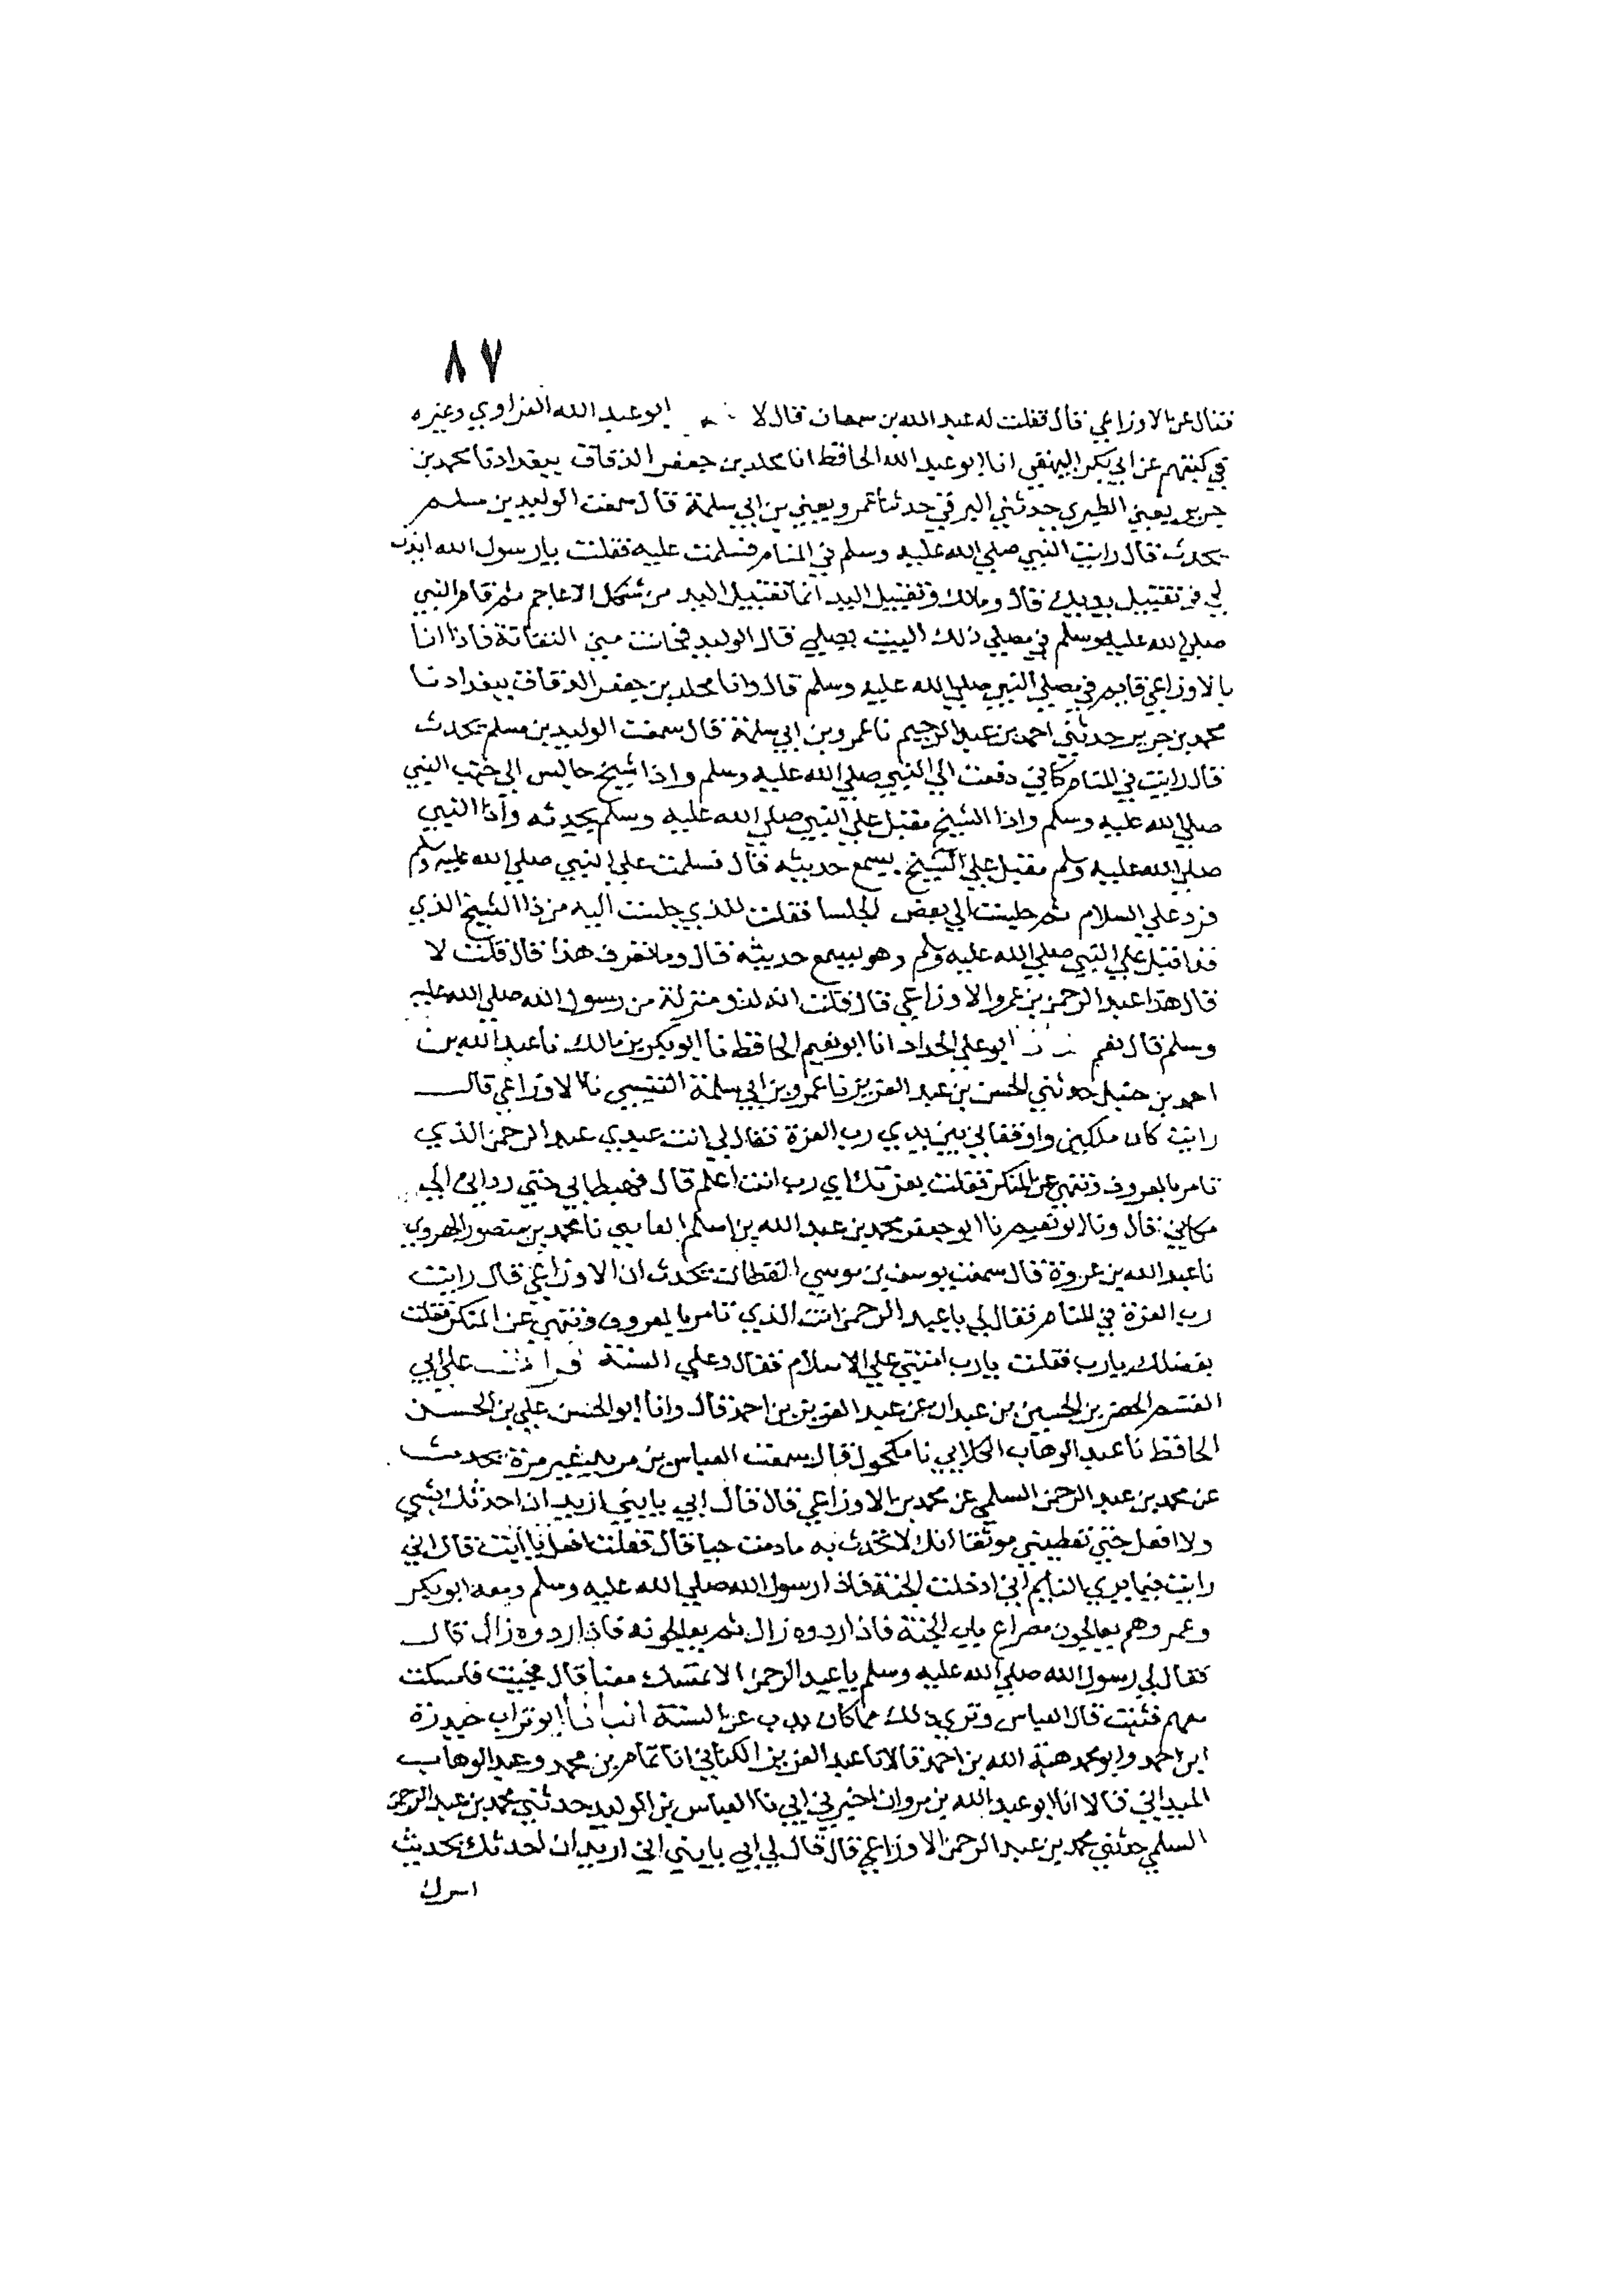 ٨٧
فقال عن الاوزاعي قال فقلت له عبد الله بن سمعان قال لا ابو عبد الله الفراوي وغيره
في كتبهم عن ابي بكر البيهقي انا ابو عبد الله الحافظ انا مخلد بن جعفر الدقاق ببغداد نا محمد بن
جرير يعني الطبري حدثني البرقي حدثنا عمرو يعني بن ابي سلمة قال سمعت الوليد بن مسلم
يحدث قال رايت النبي صلي الله عليه وسلم في المنام فسلمت عليه فقلت يا رسول الله ايذن
لي في تقبيل يديك قال ومالك وتقبيل اليد انما تقبيل اليد من شكل الاعاجم ثم قام النبي
صلي الله عليه وسلم في مصلي ذلك البيت يصلي قال الوليد فحانت مني التفاتة فاذا انا
بالاوزاعي قايم في مصلي النبي صلي الله عليه وسلم قال وانا مخلد بن جعفر الدقاق ببغداد نا
محمد بن جرير حدثني احمد بن عبد الرحيم نا عمرو بن ابي سلمة قال سمعت الوليد بن مسلم يحدث
قال رايت في المنام كاني دفعت الي النبي صلي الله عليه وسلم واذا شيخ جالس الي جنب النبي
صلي الله عليه وسلم واذا الشيخ مقبل علي النبي صلي الله عليه وسلم يحدثه واذا النبي
صلي الله عليه وسلم مقبل علي الشيخ يسمع حديثه قال فسلمت علي النبي صلي الله عليه وسلم
فرد علي السلام ثم جلست الي بعض الجلسا فقلت للذي جلست اليه من ذا الشيخ الذي
قد اقبل علي النبي صلي الله عليه وسلم وهو يسمع حديثه قال وما تعرف هذا قال قلت لا
قال هذا عبد الرحمن بن عمرو الاوزاعي قال قلت انه لذو منزلة من رسول الله صلي الله عليه
وسلم قال نعم ابو علي الحداد انا ابو نعيم الحافظ نا ابو بكر بن مالك نا عبد الله بن
احمد بن حنبل حدثني الحسن بن عبد العزيز نا عمرو بن ابي سلمة التنيسي نا الاوزاعي قال
رايت كان ملكين واوقفاني بين يدي رب العزة فقال لي انت عبدي عبد الرحمن الذي
تامر بالمعروف وتنهي عن المنكر فقلت بعزتك اي رب انت اعلم قال فهبطا بي حتي رداني الي
مكاني قال ونا ابو نعيم نا ابو جعفر محمد بن عبد الله بن اسلم نا محمد بن منصور الهروي
نا عبد الله بن عروة قال سمعت يوسف بن موسي القطان يحدث ان الاوزاعي قال رايت
رب العزة في المنام فقال لي يا عبد الرحمن انت الذي تامر بالمعروف وتنهي عن المنكر فقلت
بفضلك يا رب فقلت يا رب امتني علي الاسلام فقال وعلي السنة قرات علي ابي
القسم الخضر بن الحسين بن عبدان عن عبد العزيز بن احمد قال وانا ابو الحسن علي بن الحسن
الحافظ نا عبد الوهاب الكلابي نا مكحول قال سمعت العباس بن مزيد غير مرة يحدث
عن محمد بن عبد الرحمن السلمي عن محمد بن الاوزاعي قال قال ابي يا بني اريد ان احدثك بشي
ولا افعل حتي تعطيني موثقا انك لا تحدث به ما دمت حيا قال فقلت افعل يا ابت قال اني
رايت فيما يري النايم اني ادخلت الجنة فاذا رسول الله صلي الله عليه وسلم ومعه ابو بكر
وعمر وهم يعالجون مصراع باب الجنة فاذا ردوه زال ثم يعالجونه فاذا ردوه زال قال
فقال لي رسول الله صلي الله عليه وسلم يا عبد الرحمن الا تمسك معنا قال فجيت فامسكت
معهم فثبت قال العباس ونري ذلك مما كان يذب عن السنة انبانا ابو تراب حيدرة
ابن احمد وابو محمد هبة الله بن احمد قالا نا عبد العزيز الكتاني انا تمام بن محمد وعبد الوهاب
الميداني قالا انا ابو عبد الله بن مروان اخبرني ابي نا العباس بن الوليد حدثني محمد بن عبد الرحمن
السلمي حدثني محمد بن عبد الرحمن الاوزاعي قال قال لي ابي يا بني اني اريد ان احدثك بحديث
اسرك